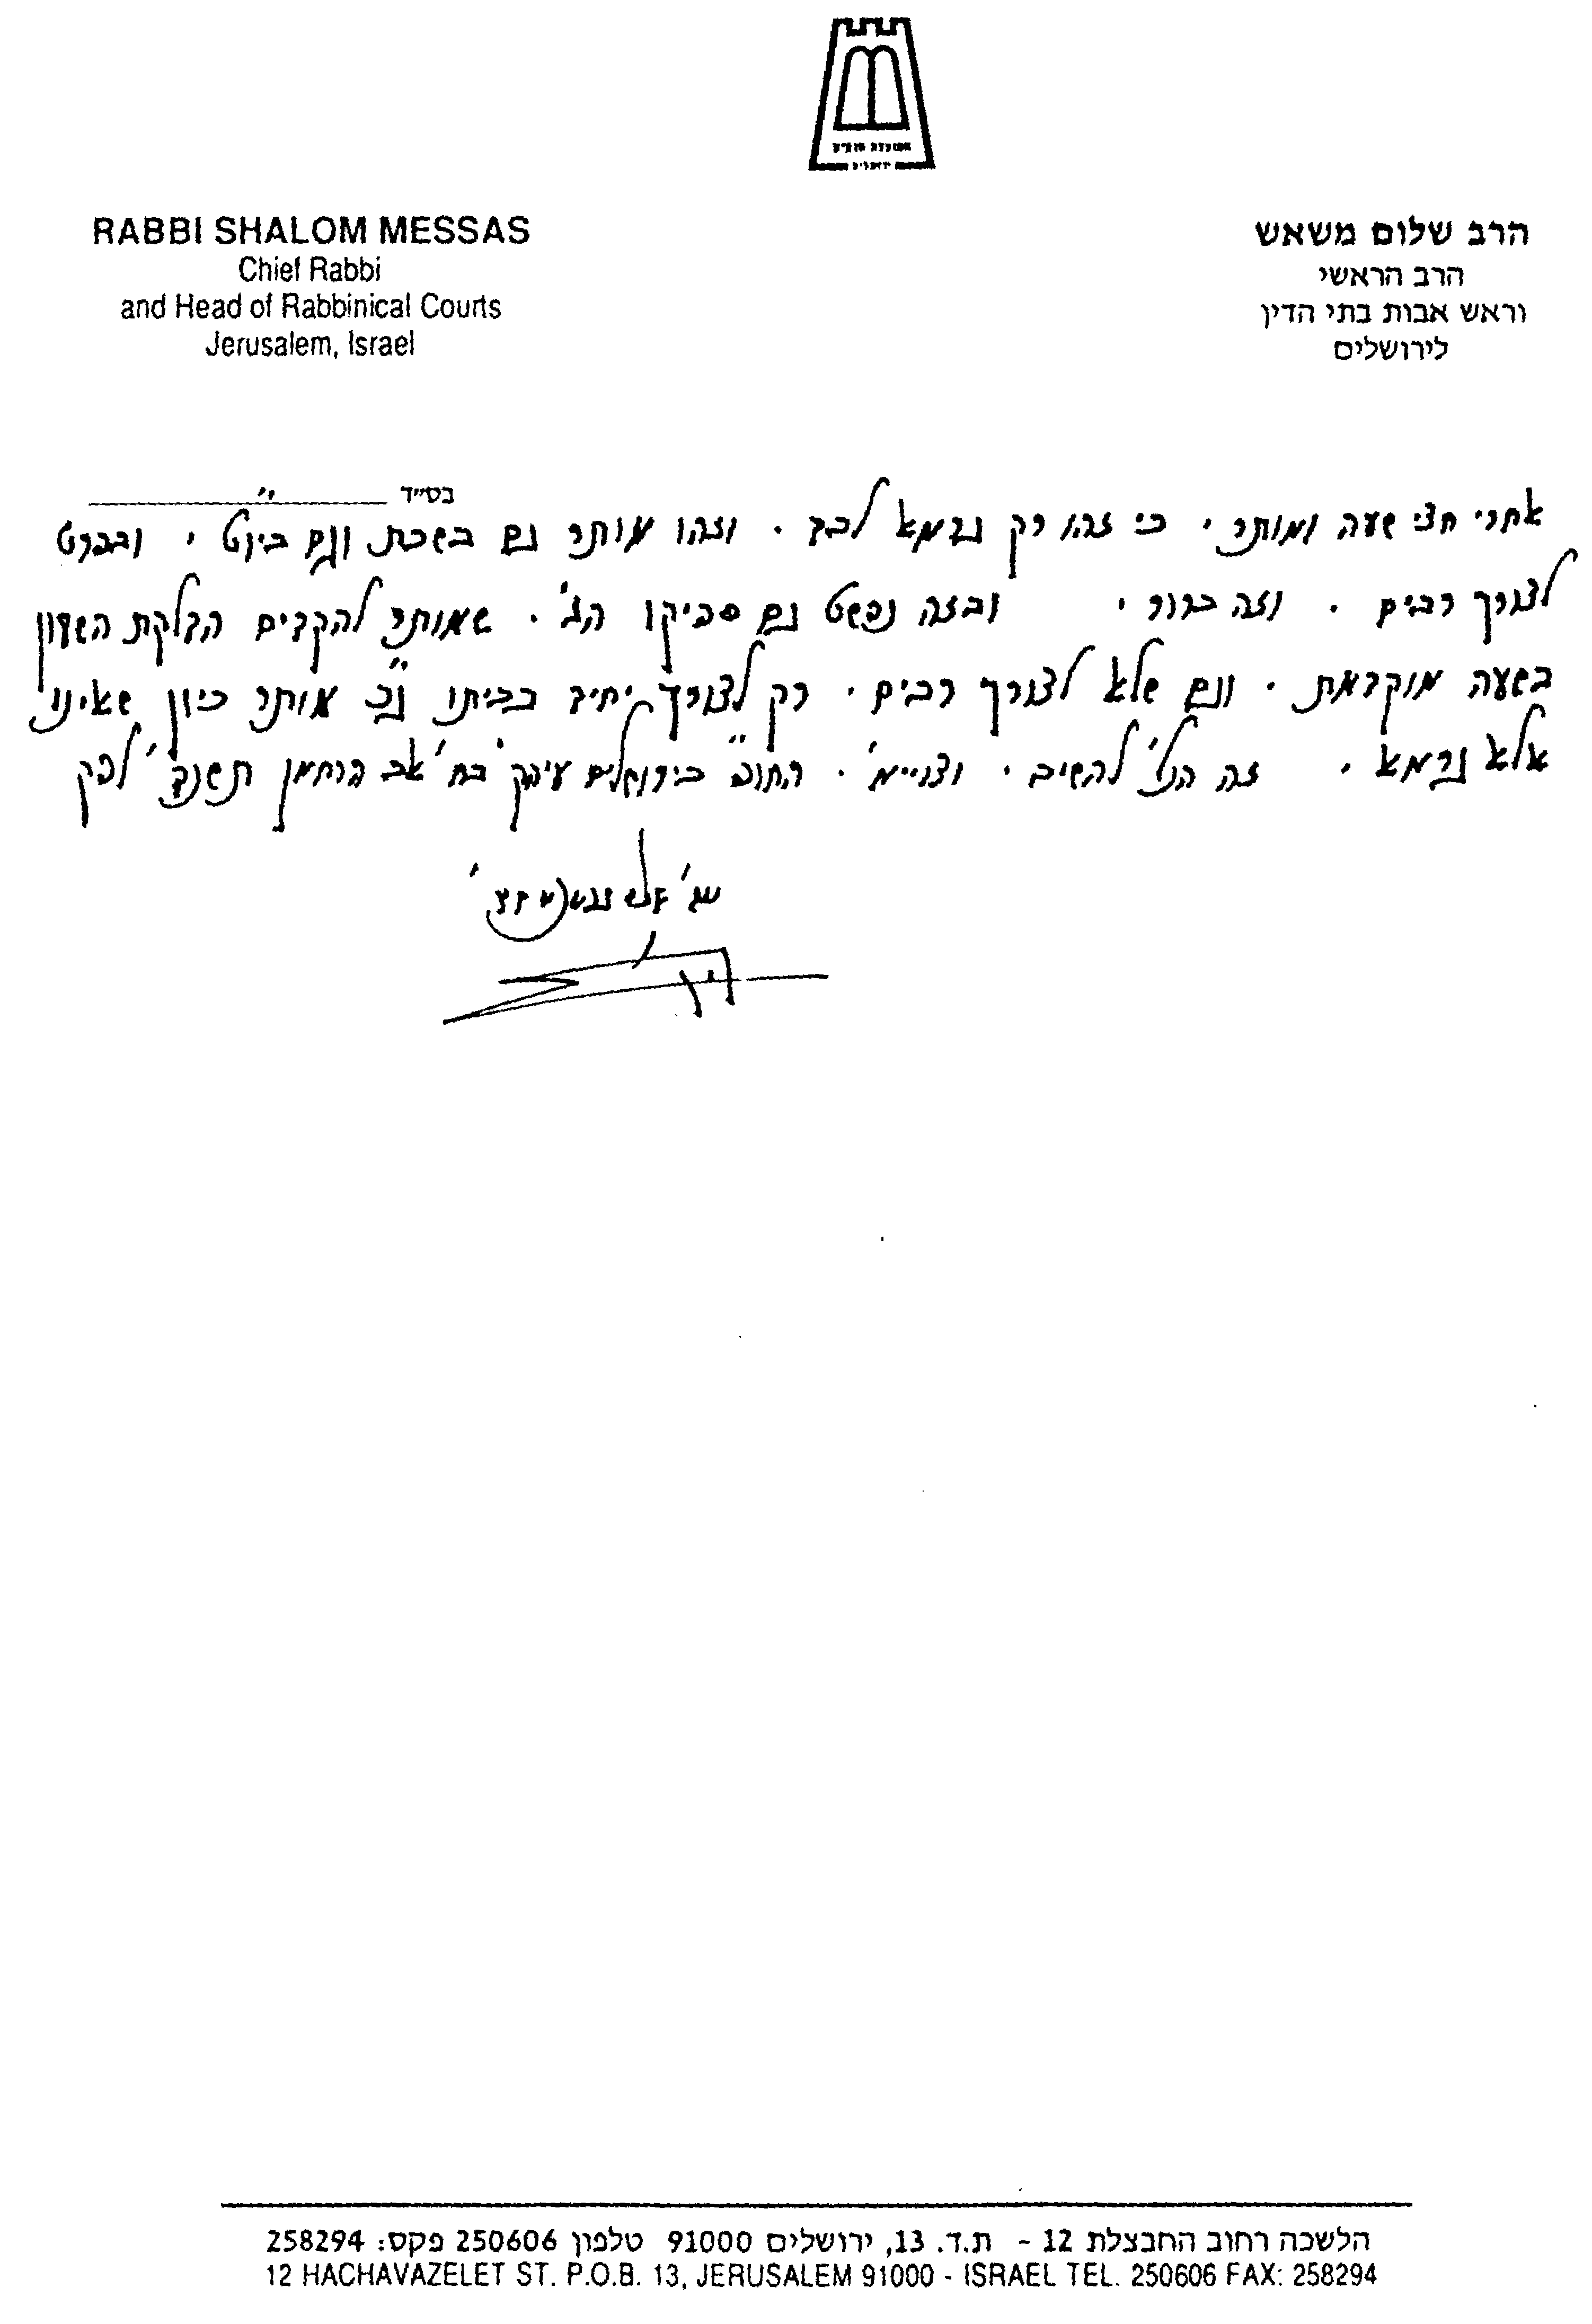 RABBI SHALOM MESSAS
Chief Rabbi
and Head of Rabbinical Courts
Jerusalem, Israel
הרב שלום משאש
הרב הראשי
וראש אבות בתי הדין
לירושלים
בס״ד
אחרי חצי שעה ומותר, כי זהו רק גרמא לבד. וזהו מותר גם בשבת וגם ביו״ט, ובפרט
לצורך רבים. וזה ברור, ובזה נפשט גם ספיקו הג'. שמותר להקדים הדלקת השעון
בשעה מוקדמת. וגם שלא לצורך רבים, רק לצורך יחיד בביתו ג״כ מותר כיון שאינו
אלא גרמא, זה הנל' להשיב, וצויימ'. החו״פ בירושלים עיהק' בח' אב הרחמן תשנד' לפק
הלשכה רחוב החבצלת 12 - ת.ד. 13, ירושלים 91000 טלפון 250606 פקס: 258294
12 HACHAVAZELET ST. P.O.B. 13, JERUSALEM 91000 - ISRAEL TEL. 250606 FAX: 258294